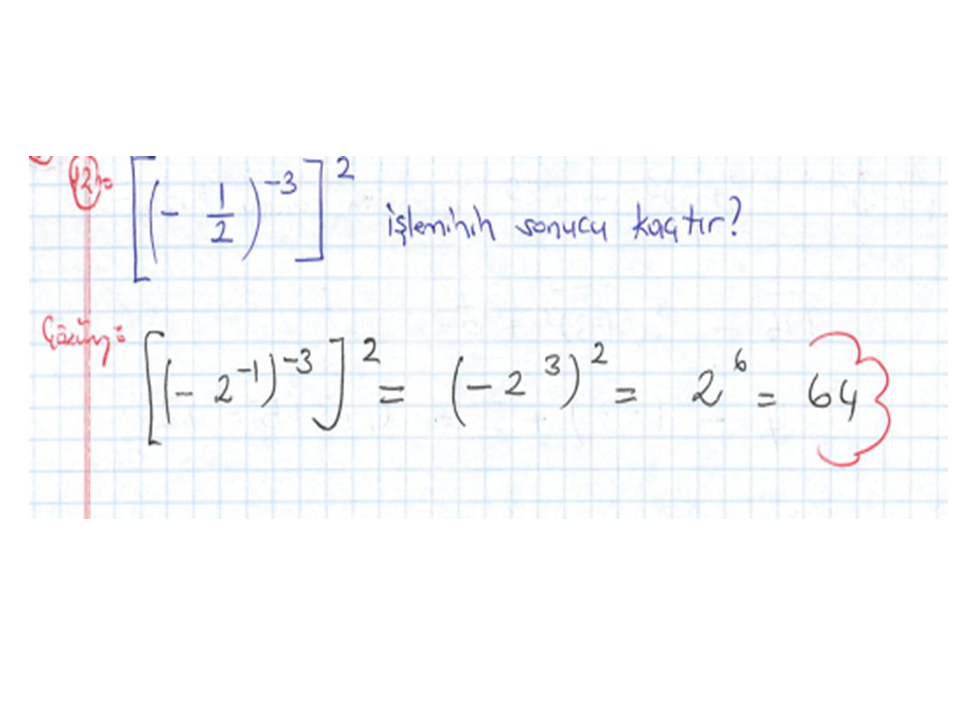 12)= [(- 1/2)^-3]^2 işleminin sonucu kaçtır?
Çözüm: [(- 2^-1)^-3]^2 = (- 2^3)^2 = 2^6 = 64